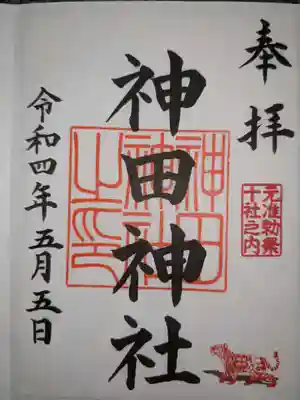 奉拝
元准勅祭
十社之内
神田神社
神田
神社
之印
令和四年五月五日